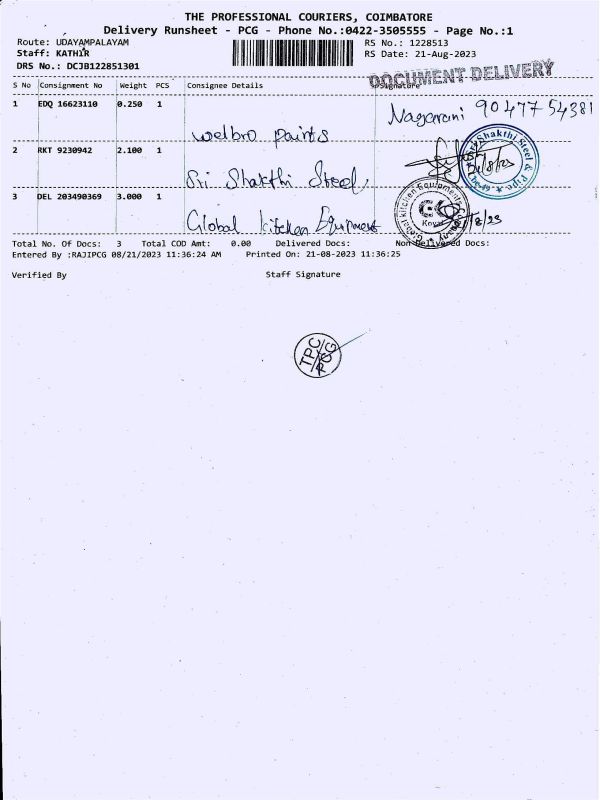 THE PROFESSIONAL COURIERS, COIMBATORE
Delivery Runsheet - PCG - Phone No.:0422-3505555 - Page No.:1
Route: UDAYAMPALAYAM
Staff: KATHIR
DRS No.: DCJB122851301
RS No.: 1228513
RS Date: 21-Aug-2023
DOCUMENT DELIVERY
S No Consignment No Weight PCS Consignee Details Signature
1 EDQ 16623110 0.250 1
Nagamani 90477 54381
welbro paints
2 RKT 9230942 2.100 1
Sri Shakthi Steel
Shakthi Steel & Pipe
21/8/23
3 DEL 203490369 3.000 1
Global kitchen Equipment
Global kitchen Equipments
GK
/8/23
Total No. Of Docs: 3 Total COD Amt: 0.00 Delivered Docs: Non Delivered Docs:
Entered By :RAJIPCG 08/21/2023 11:36:24 AM Printed On: 21-08-2023 11:36:25
Verified By Staff Signature
TPC
PCG